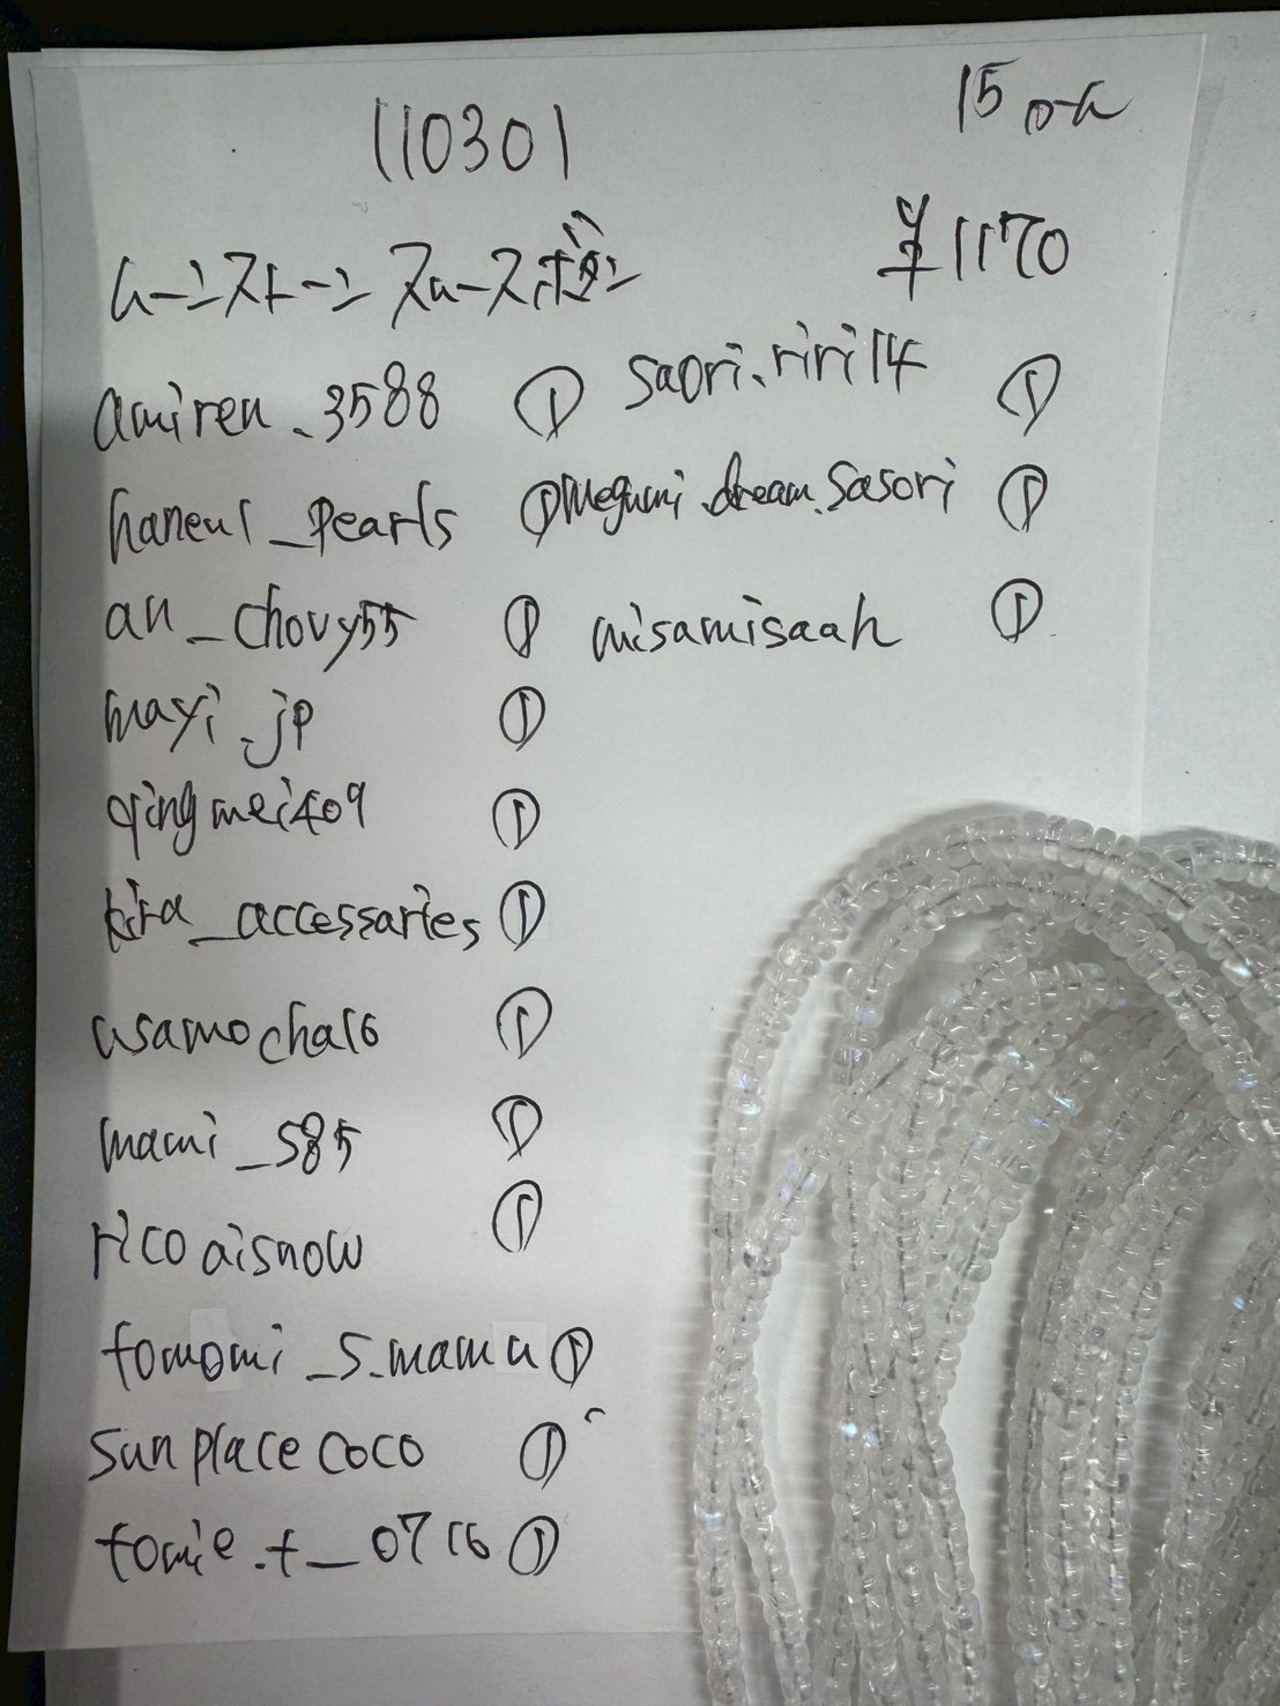 110301
15 ローム
ムーンストーン スムースボタン
¥1170
amiren_3588 ①
haneul_pearls ①
an_chovy55 ①
mayi.jp ①
qingmei409 ①
kira_accessaries ①
usamocha16 ①
mami_585 ①
ricoaisnow ①
tomomi_s.mama ①
sunplacecoco ①
tomie.t_0716 ①
saori.riri14 ①
megumi.dream.sasori ①
misamisaah ①